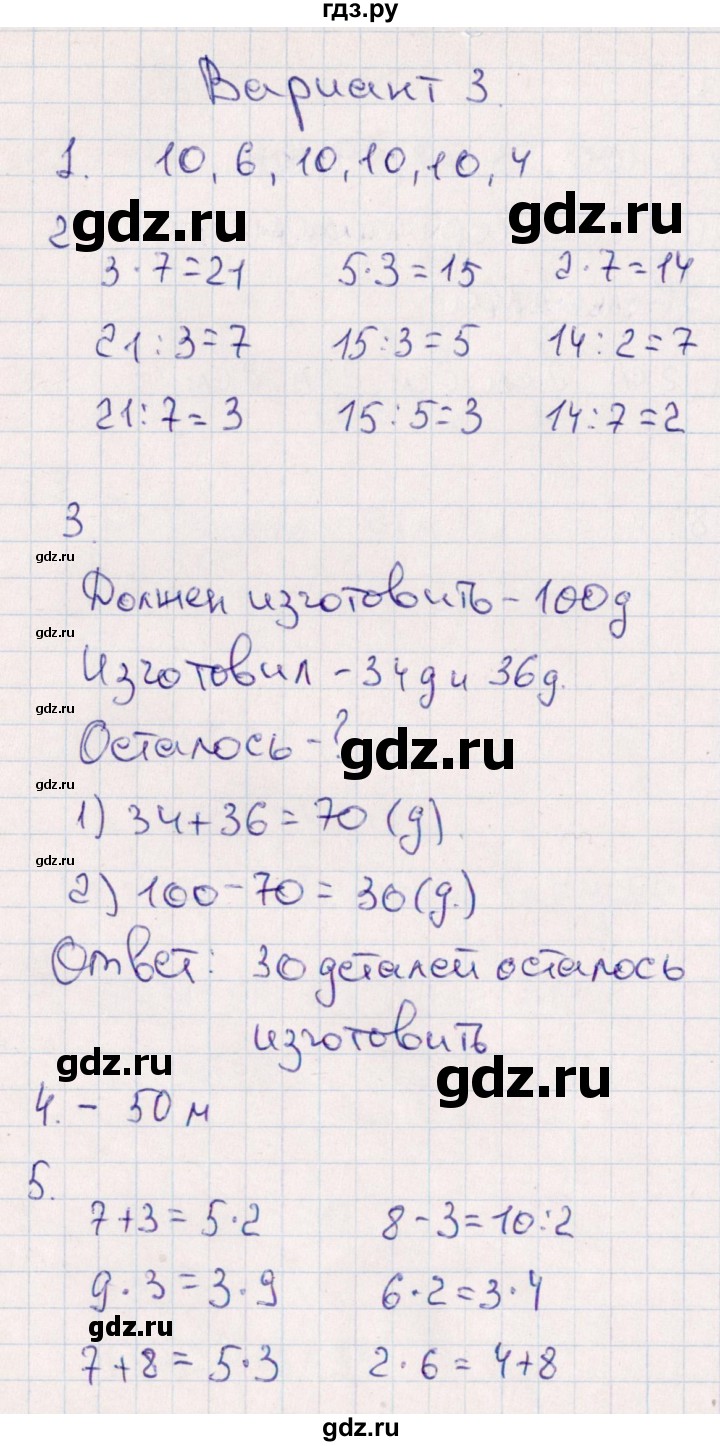 гдз.ру
Вариант 3.
1. 10, 6, 10, 10, 10, 4
gdz.ru
2
gdz.ru
3·7=21 5·3=15 2·7=14
21:3=7 15:3=5 14:2=7
21:7=3 15:5=3 14:7=2
3.
gdz.ru
Должен изготовить - 100 д
gdz.ru
Изготовил - 34 д и 36 д.
gdz.ru
Осталось - ?
gdz.ru
gdz.ru
1) 34+36=70 (д).
gdz.ru
2) 100-70=30 (д.)
Ответ: 30 деталей осталось
изготовить
gdz.ru
gdz.ru
4. - 50 м
5.
7+3=5·2 8-3=10:2
9·3=3·9 6·2=3·4
gdz.ru
7+8=5·3 2·6=4+8
gdz.ru